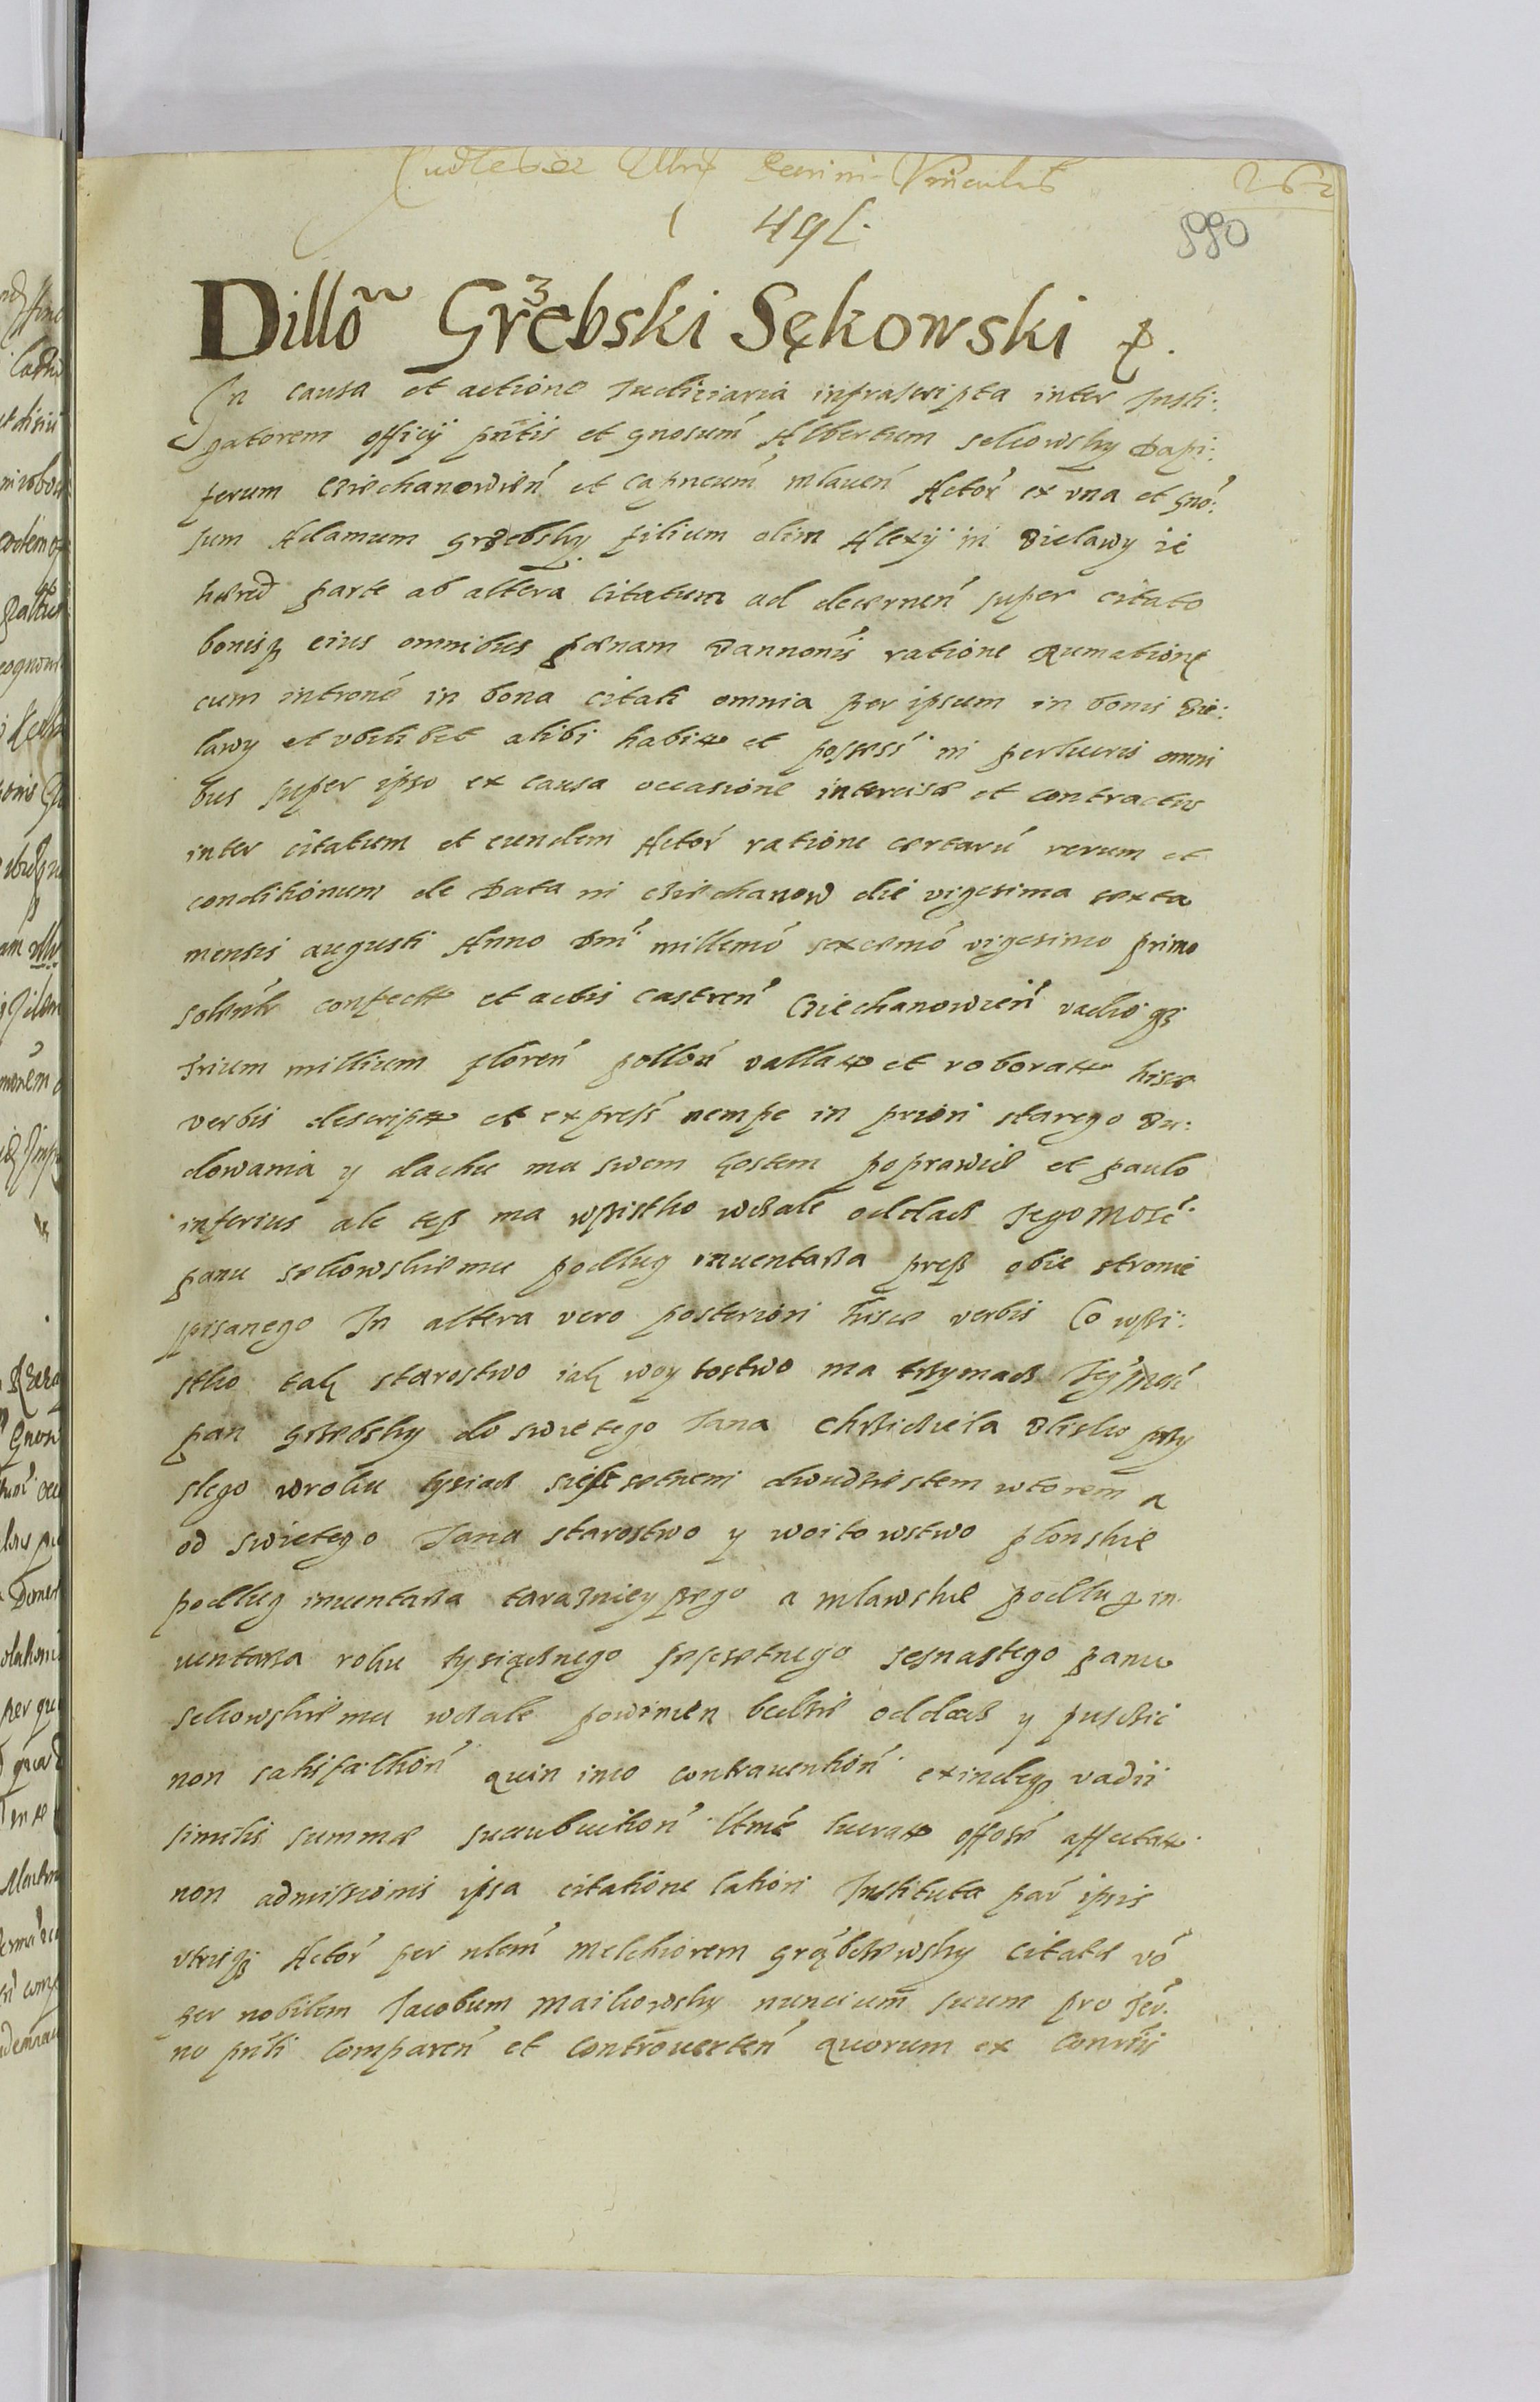 491.
990
Dillõ Grzebski Sękowski
In causa et actione Judiciaria infrascripta inter Insti:
gatorem officÿ pntis et gnosum Albertum sekowsky Dapi:
ferum Cziechanowien et Capneum mlauen Actor ex vna et Gno:
sum Adamum grzebsky filium olim Alexÿ in Bielawy ie
hæred parte ab altera Citatum ad decernen super citato
bonisq eius omnibus pænam Bannonis ratione
cum introne in bona citati omnia per ipsum in bonis Bie:
lawy et vbilibet alibi habit et possess in perlucris omni
bus super ipso ex causa occasione intercisæ et contractus
inter citatum et eundem Actor ratione certaru rerum et
conditionum de Data in Cziechanow die vigesima sexta
mensis augusti Anno Dni millemo sexcemo vigesimo primo
confect et actis castren Cziechanowien vadioq
trium millium floren pollon vallat et roborat hisce
verbis descript et express nempe in priori starego Bu:
dowania y dachu ma swem kostem poprawic et paulo
inferius ale tesz ma wszistko wczale oddacz Jego Mosc
panu sekowskiemu podlug inuentarza presz obie stronie
spisanego In altera vero posteriori hisce verbis Co wszi:
stko tak starostwo iak woytostwo ma trzymacz Je Msc
pan grzebsky do swietego Jana Chrzciciela blisko przy
slego wroku tysiacz sieszcsetnem dwudziestem wtorem a
od swietego Jana starostwo y woitowstwo plonskie
podlug inuentarza tarazniey szego a mlawskie podlug in
uentarza roku tysiącznego szescsetnego sesnastego panu
sekowskiemu wczale powinien bedzie oddacz y puscic
non satisfaction quin imo contrauention exindeq vadii
similis summæ succubuition lucrat affectat
non admissionis ipsa citatione lationi Instituta par ipsis
vtrisq Actor per nlem Melchiorem citato vo
per nobilem Jacobum Maikowsky nuncium suum pro
no pnti Comparen et Controuerten quorum ex